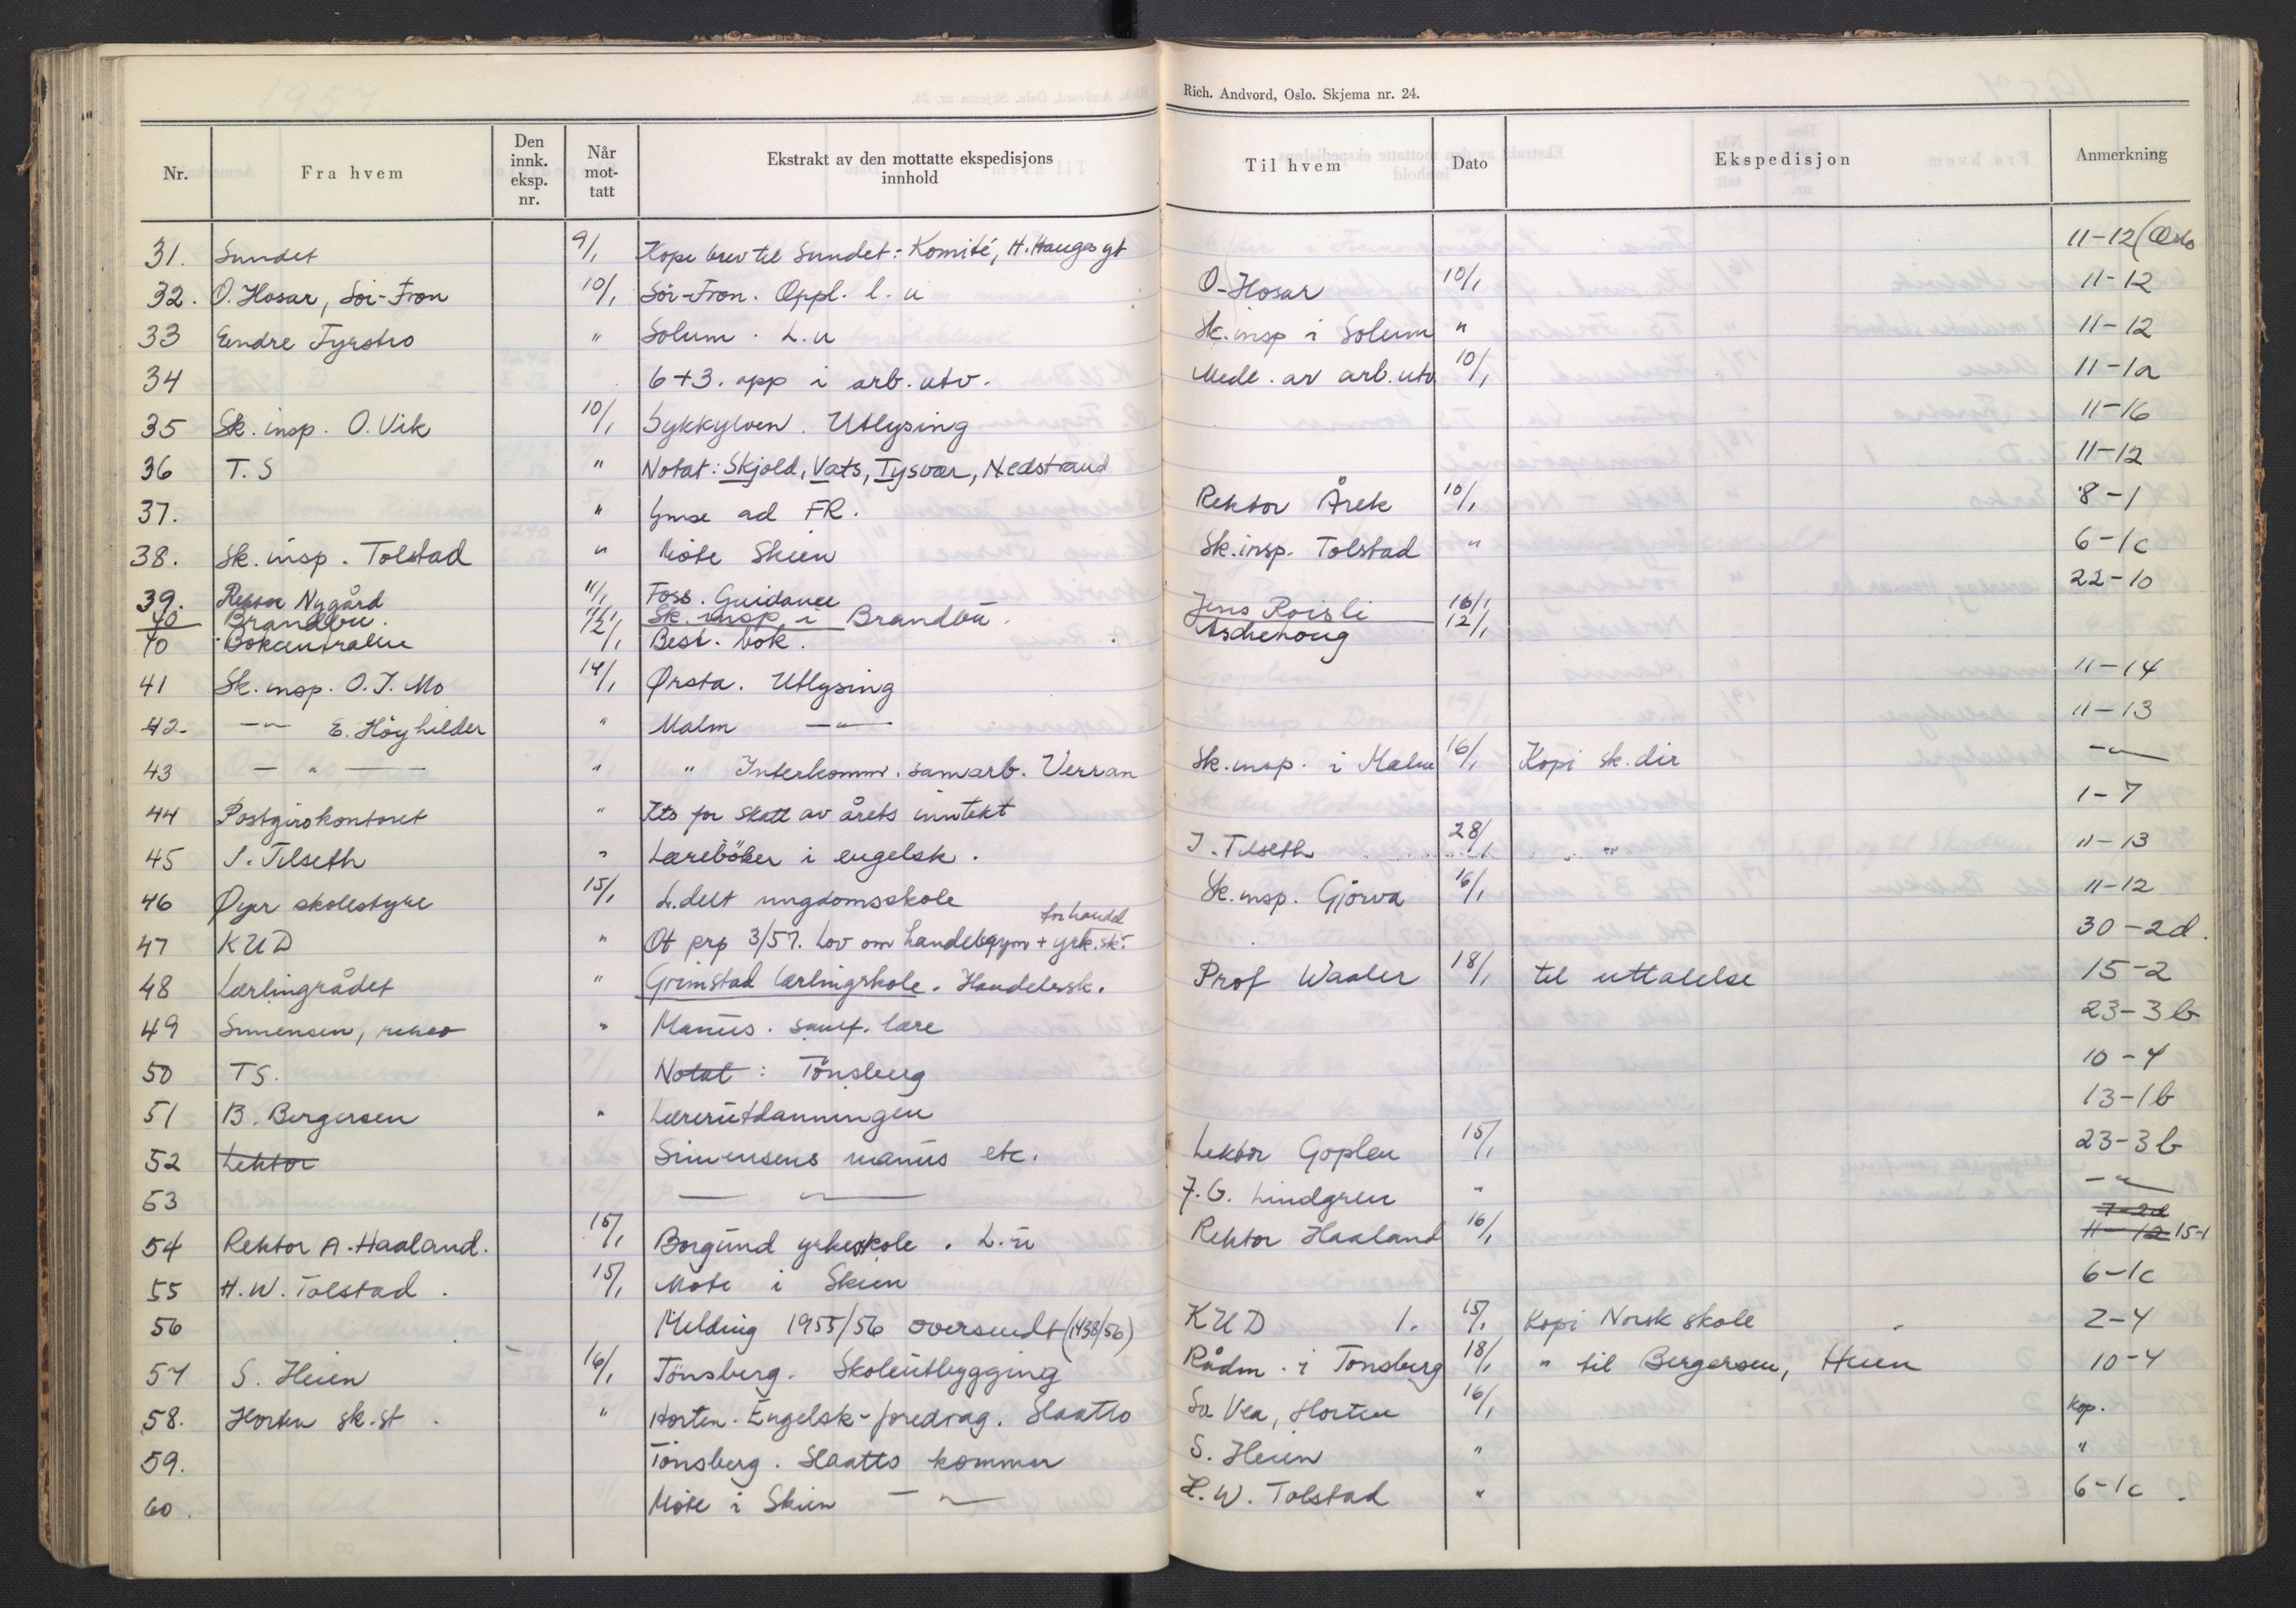 Rich. Andvord, Oslo. Skjema nr. 24.
Nr. | Fra hvem | Den innk. eksp. nr. | Når mot-tatt | Ekstrakt av den mottatte ekspedisjons innhold | Til hvem | Dato | Ekspedisjon | Anmerkning
31. Sundet 9/1 Kopi brev til Sundet: Komité, H. Hauges gt 11-12 (Oslo
32. O. Hosar, Sör-Fron 10/1 Sör-Fron. Oppl. l. u O. Hosar 10/1 11-12
33 Endre Fyrstro " Solum. L. u Sk. insp i Solum " 11-12
34 6+3. opp i arb. utv. Medl. av arb. utv 10/1 11-1a
35 Sk. insp. O. Vik 10/1 Sykkylven. Utlysing 11-16
36 T. S " Notat: Skjold, Vats, Tysvær, Nedstrand 11-12
37. " Ymse ad FR. Rektor Årek 10/1 8-1
38. Sk. insp. Tolstad " Möte Skien Sk. insp. Tolstad " 6-1c
39. Rektor Nygård 11/1 Foss. Guidance Jens Roisli 16/1 22-10
40 Brandbu. Sk. insp i Brandbu.
40 Bokcentralen 12/1 Best. bok. Aschehoug 12/1
41 Sk. insp. O. J. Mo 14/1 Ørsta. Utlysing 11-14
42. —"— E. Höyhilder " Malm —"— 11-13
43 — " — " " Interkomm. samarb. Verran Sk. insp. i Malm 16/1 Kopi sk. dir —"—
44 Postgirokontoret " Kto for skatt av årets inntekt 1-7
45 J. Tilseth " Lærebøker i engelsk. J. Tilseth 28/1 " 11-13
46 Øyer skolestyre 15/1 L.delt ungdomsskole Sk. insp. Gjörva 16/1 11-12
47 KUD " Ot prp 3/57. Lov om handelsgym + yrk. sk. for handel 30-2d.
48 Lærlingrådet " Grimstad lærlingskole. Handelssk. Prof Waaler 18/1 til uttalelse 15-2
49 Simensen, " Manus. samf. lære 23-3b
50 TS. Notat: Tönsberg 10-4
51 B. Bergersen " Lærerutdanningen 13-1b
52 Lektor Simensens manus etc. Lektor Goplen 15/1 23-3b
53 — " — F. G. Lindgren " —"—
7-2d
54 Rektor A. Haaland. 15/1 Borgund yrkesskole. L. u Rektor Haaland 16/1 11-12 15-1
55 H. W. Tolstad. 15/1 Møte i Skien 6-1c
56 Melding 1955/56 oversendt (1438/56) KUD 1. 15/1 Kopi Norsk skole 2-4
57 S. Heien 16/1 Tönsberg. Skoleutbygging Rådm. i Tønsberg 18/1 " til Bergersen, Heien 10-4
58. Horten sk. st. " Horten. Engelsk-foredrag. Slaatto So Vea, Horten 16/1 Kop.
59. Tönsberg. Slaatto kommer S. Heien " "
60. Möte i Skien —"— H. W. Tolstad " 6-1c.